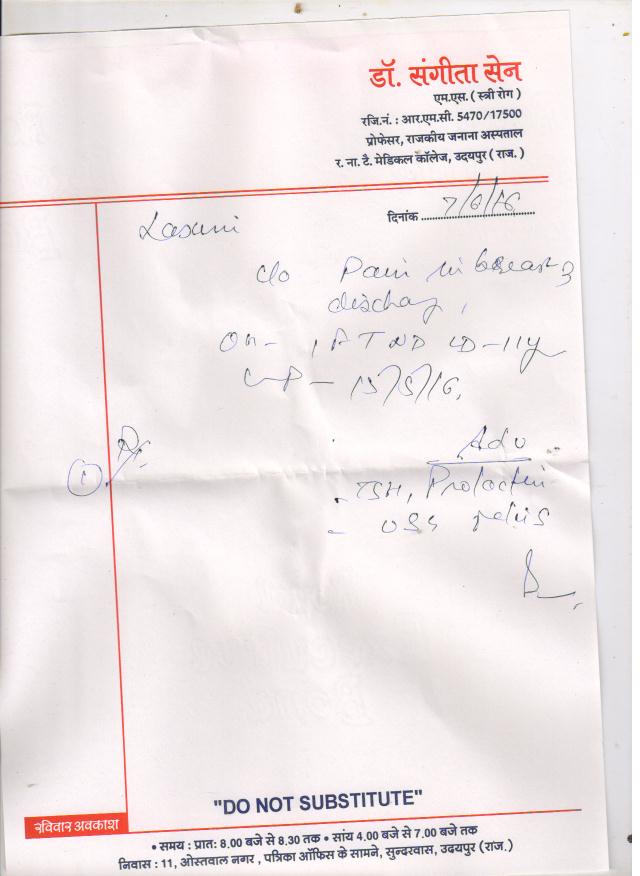 डॉ. संगीता सेन
एम.एस. ( स्त्री रोग )
रजि.नं. : आर.एम.सी. 5470/17500
प्रोफेसर, राजकीय जनाना अस्पताल
र. ना. टै. मेडिकल कॉलेज, उदयपुर ( राज. )
दिनांक 7/6/16
c/o Pain in breast
LMP - 15/5/16.
Adv
①
- TSH, Prolactin
- USG pelvis
"DO NOT SUBSTITUTE"
रविवार अवकाश
• समय : प्रातः 8.00 बजे से 8.30 तक • सांय 4.00 बजे से 7.00 बजे तक
निवास : 11, ओस्तवाल नगर , पत्रिका ऑफिस के सामने, सुन्दरवास, उदयपुर (राज.)